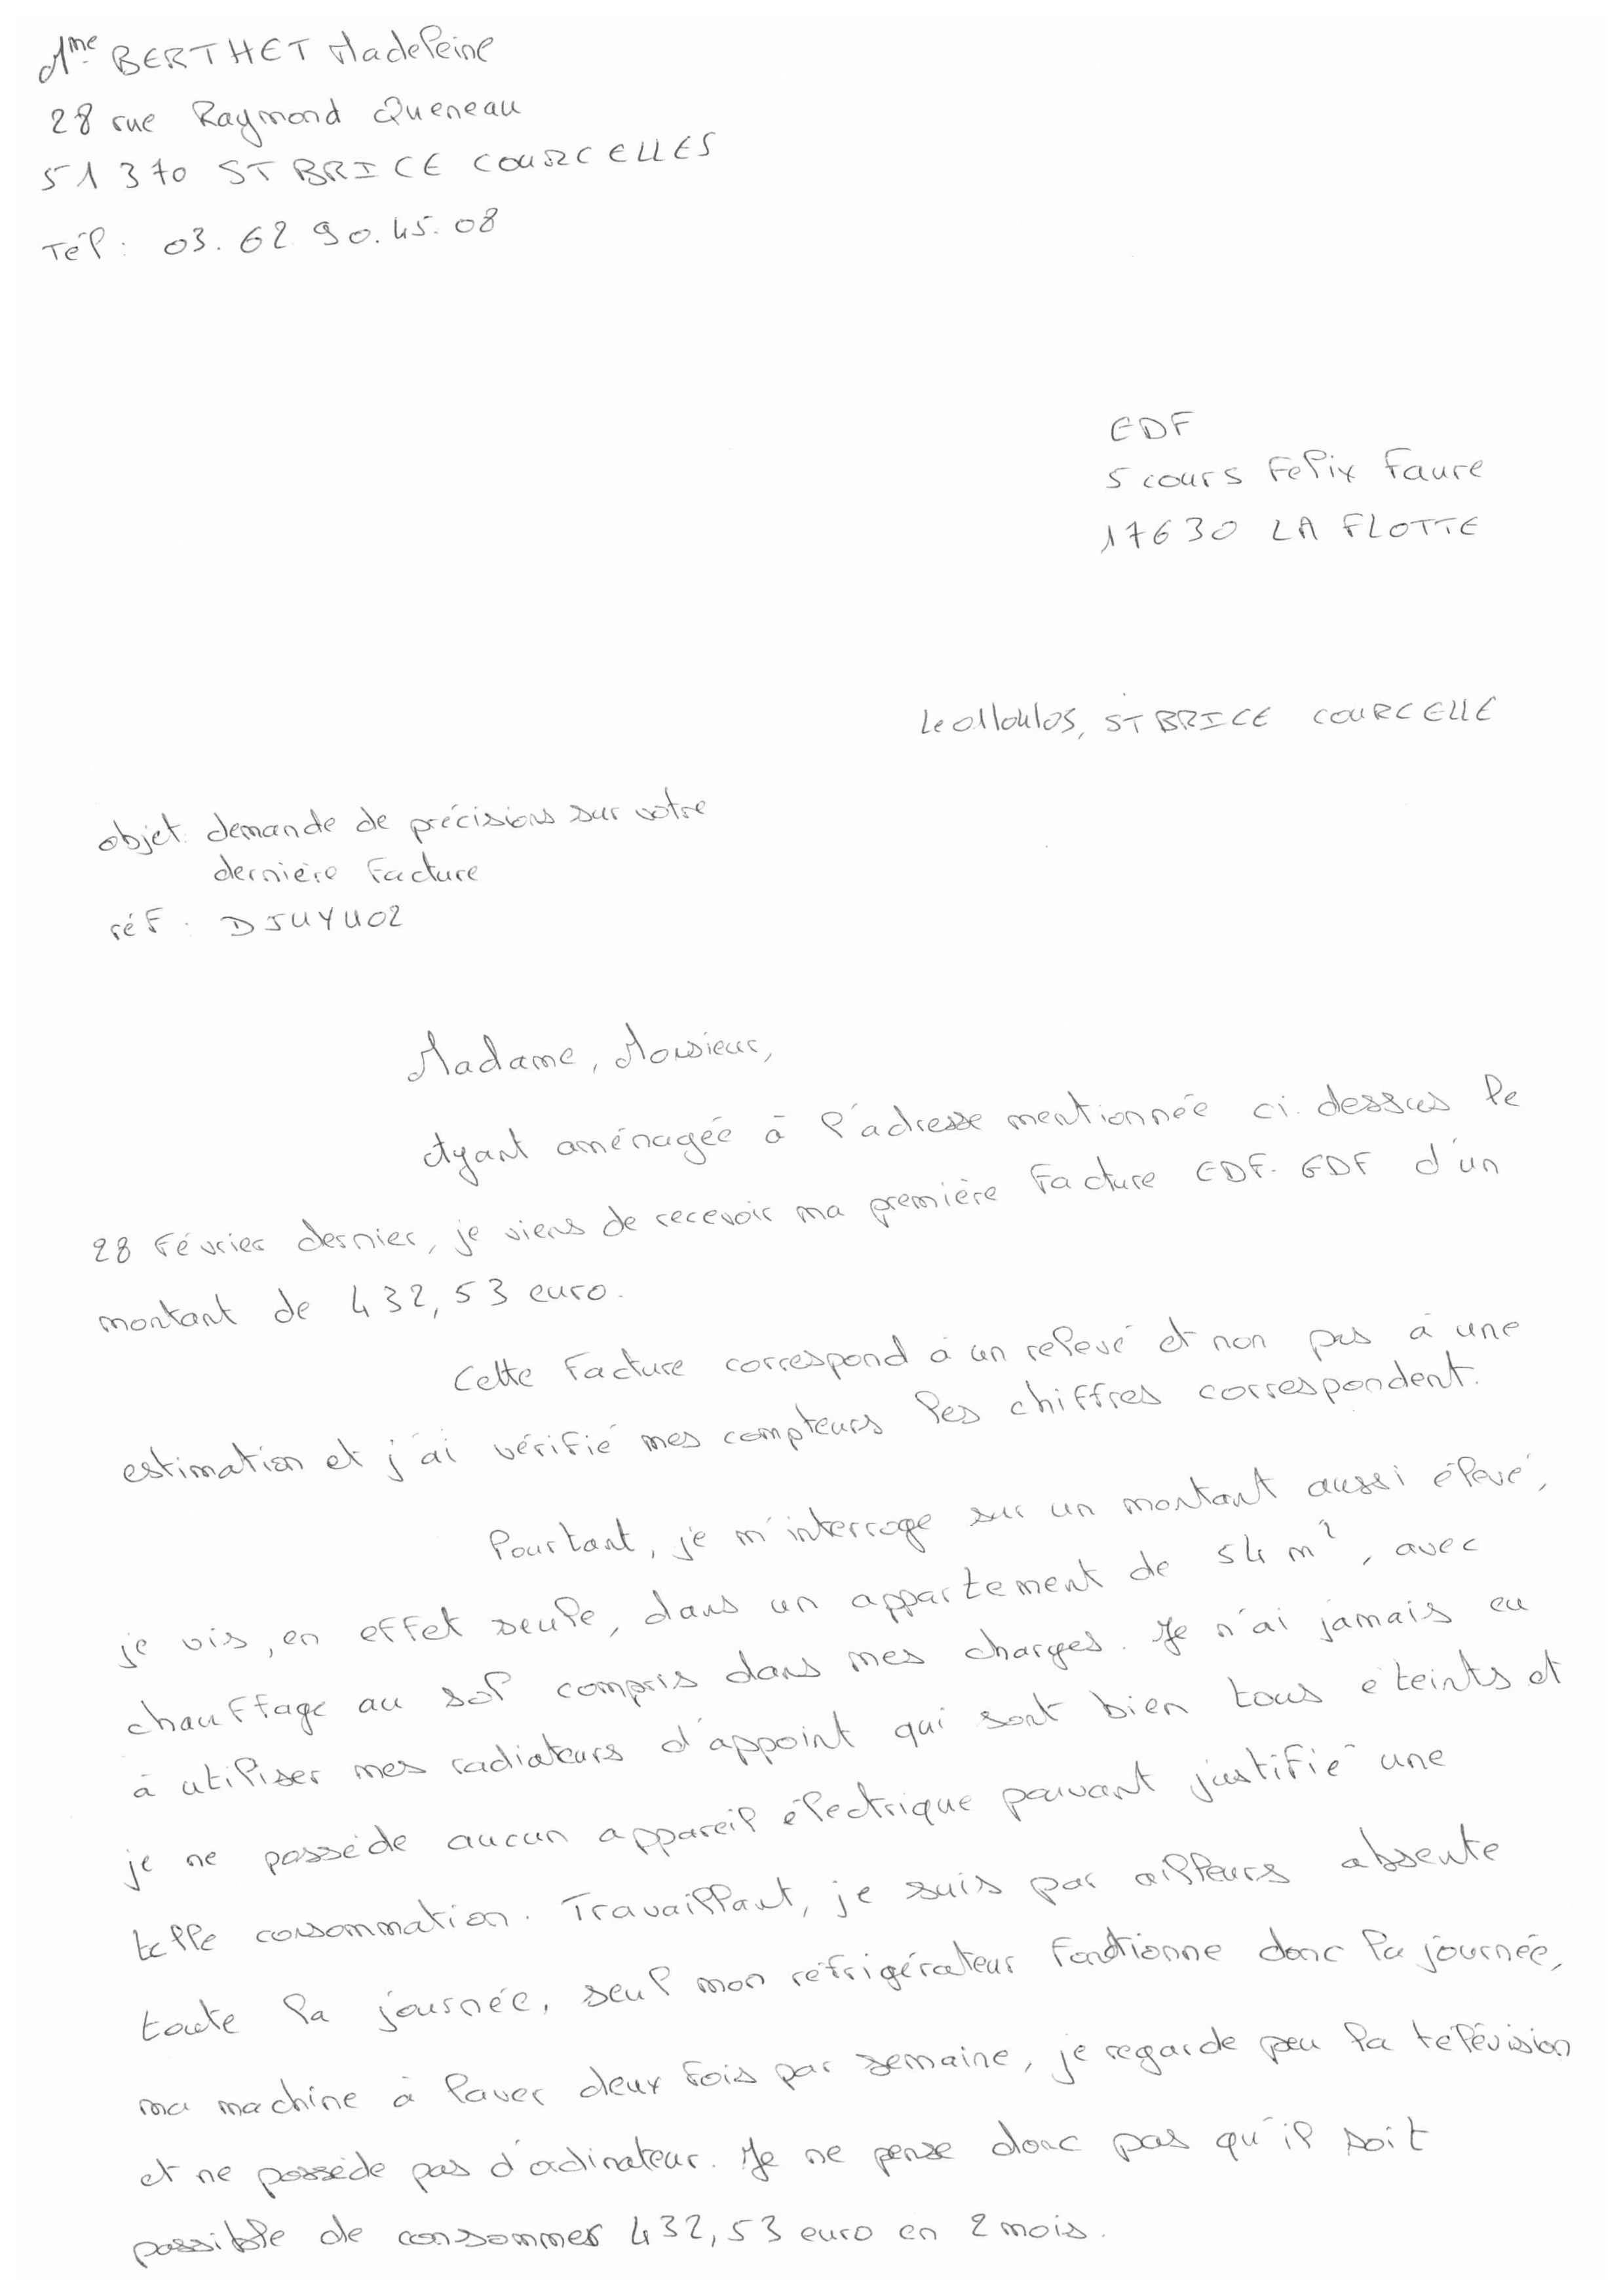 Mme BERTHET Madeleine
28 rue Raymond Queneau
51370 ST BRICE COURCELLES
Tél : 03.62.90.45.08
EDF
5 cours Felix Faure
17630 LA FLOTTE
Le ST BRICE COURCELLE
objet: demande de précisions sur votre
dernière facture
réf : DJUYU02
Madame, Monsieur,
Ayant aménagée à l'adresse mentionnée ci-dessus le
28 Février dernier, je viens de recevoir ma première facture EDF-GDF d'un
montant de 432,53 euro.
Cette facture correspond à un relevé et non pas à une
estimation et j'ai vérifié mes compteurs les chiffres correspondent.
Pourtant, je m'interroge sur un montant aussi élevé,
je vis, en effet seule, dans un appartement de 54 m², avec
chauffage au sol compris dans mes charges. Je n'ai jamais eu
à utiliser mes radiateurs d'appoint qui sont bien tous éteints et
je ne possède aucun appareil électrique pouvant justifié une
telle consommation. Travaillant, je suis par ailleurs absente
toute la journée, seul mon réfrigérateur fonctionne donc la journée,
ma machine à laver deux fois par semaine, je regarde peu la télévision
et ne possède pas d'ordinateur. Je ne pense donc pas qu'il soit
possible de consommer 432,53 euro en 2 mois.